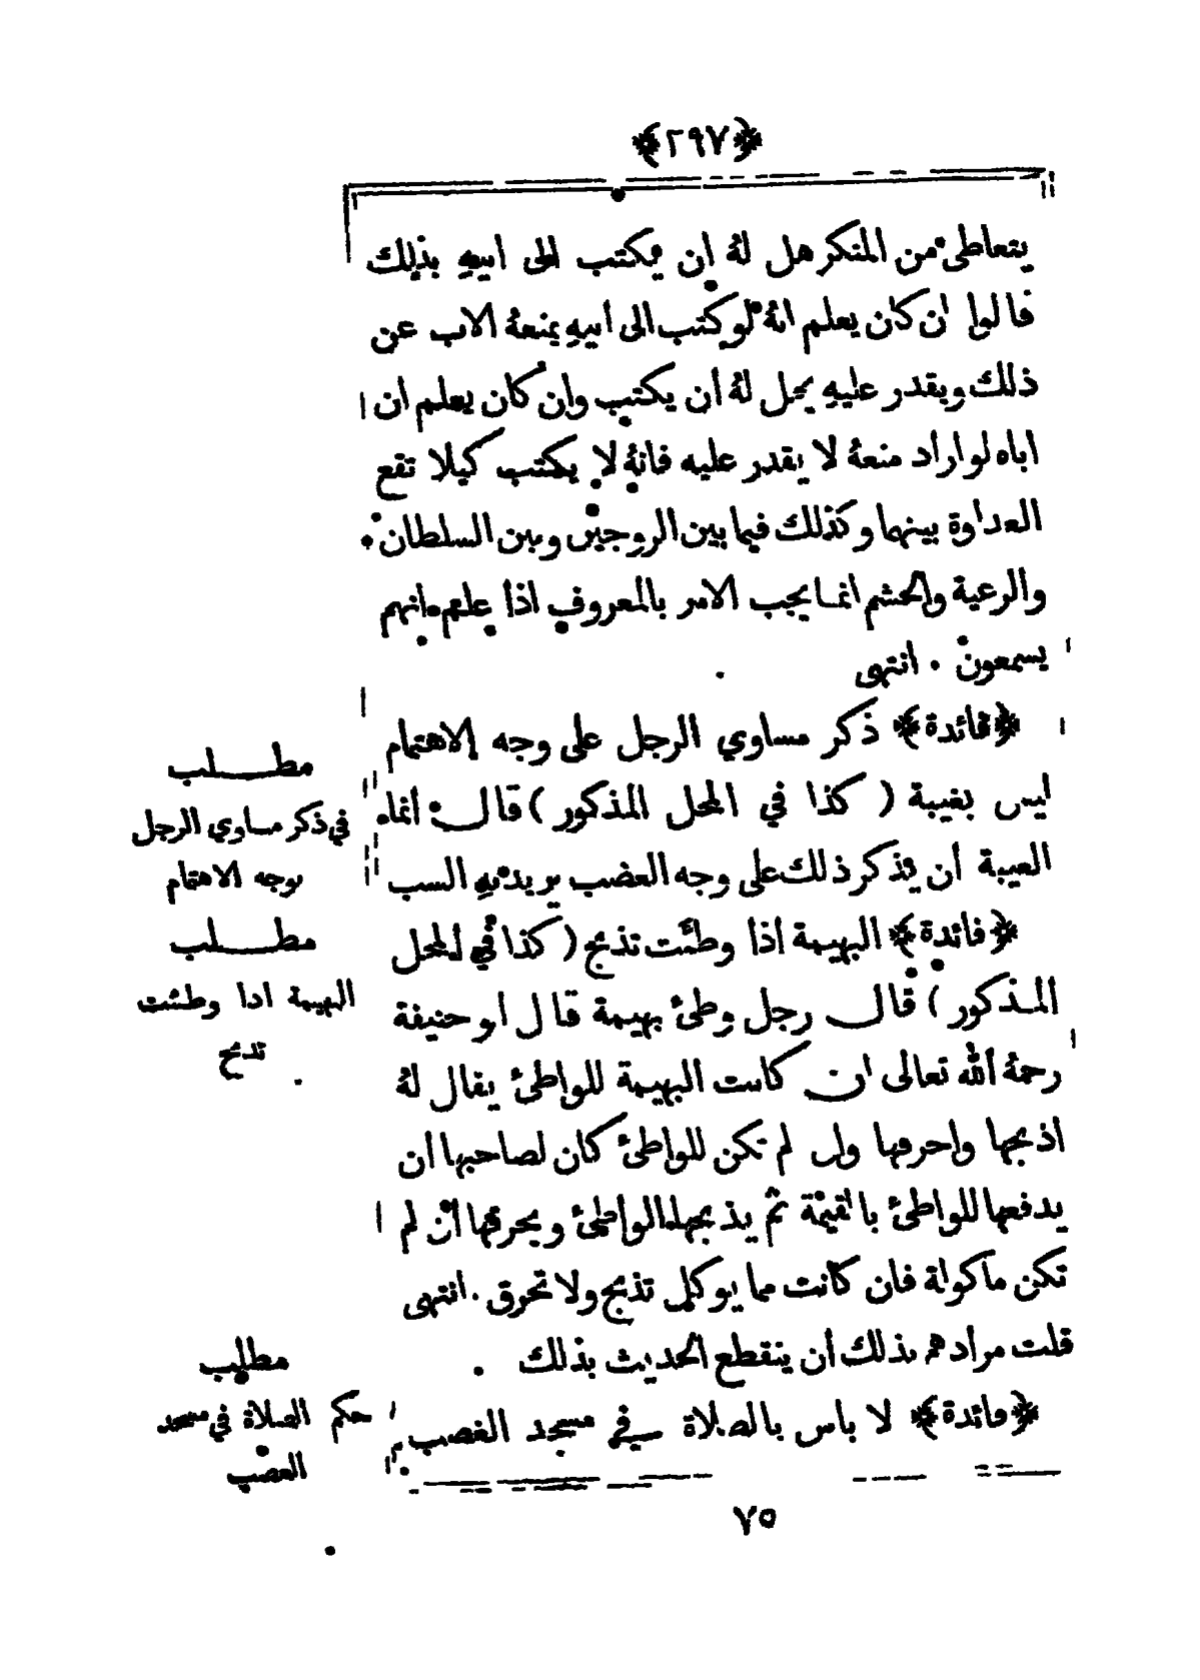 ﴿٢٩٧﴾
يتعاطى من المنكر هل لهُ ان يكتب الى ابيهِ بذلك
قالوا ان كان يعلم انهُ لو كتب الى ابيهِ يمنعهُ الاب عن
ذلك ويقدر عليهِ يحل لهُ أن يكتب وان كان يعلم ان
اباه لو اراد منعهُ لا يقدر عليه فانهُ لا يكتب كيلا تقع
العداوة بينهما وكذلك فيما بين الزوجين وبين السلطان
والرعية والحشم انما يجب الامر بالمعروف اذا علم انهم
يسمعون . انتهى
﴿فائدة﴾ ذكر مساوي الرجل على وجه الاهتمام
ليس بغيبة ( كذا في المحل المذكور ) قال انما
الغيبة أن يذكر ذلك على وجه الغضب يريد به السب
﴿فائدة﴾ البهيمة اذا وطئت تذبح ( كذا في المحل
المذكور ) قال رجل وطئ بهيمة قال ابو حنيفة
رحمهُ الله تعالى ان كانت البهيمة للواطئ يقال لهُ
اذبحها واحرقها وان لم تكن للواطئ كان لصاحبها ان
يدفعها للواطئ بالقيمة ثم يذبحها الواطئ ويحرقها ان لم
تكن ماكولة فان كانت مما يوكل تذبح ولا تحرق . انتهى
قلت مرادهم بذلك أن ينقطع الحديث بذلك .
﴿فائدة﴾ لا باس بالصلاة في مسجد الغصب
مطلب
في ذكر مساوي الرجل
بوجه الاهتمام
مطلب
البهيمة اذا وطئت
تذبح
مطلب
حكم الصلاة في مسجد
الغصب
٧٥